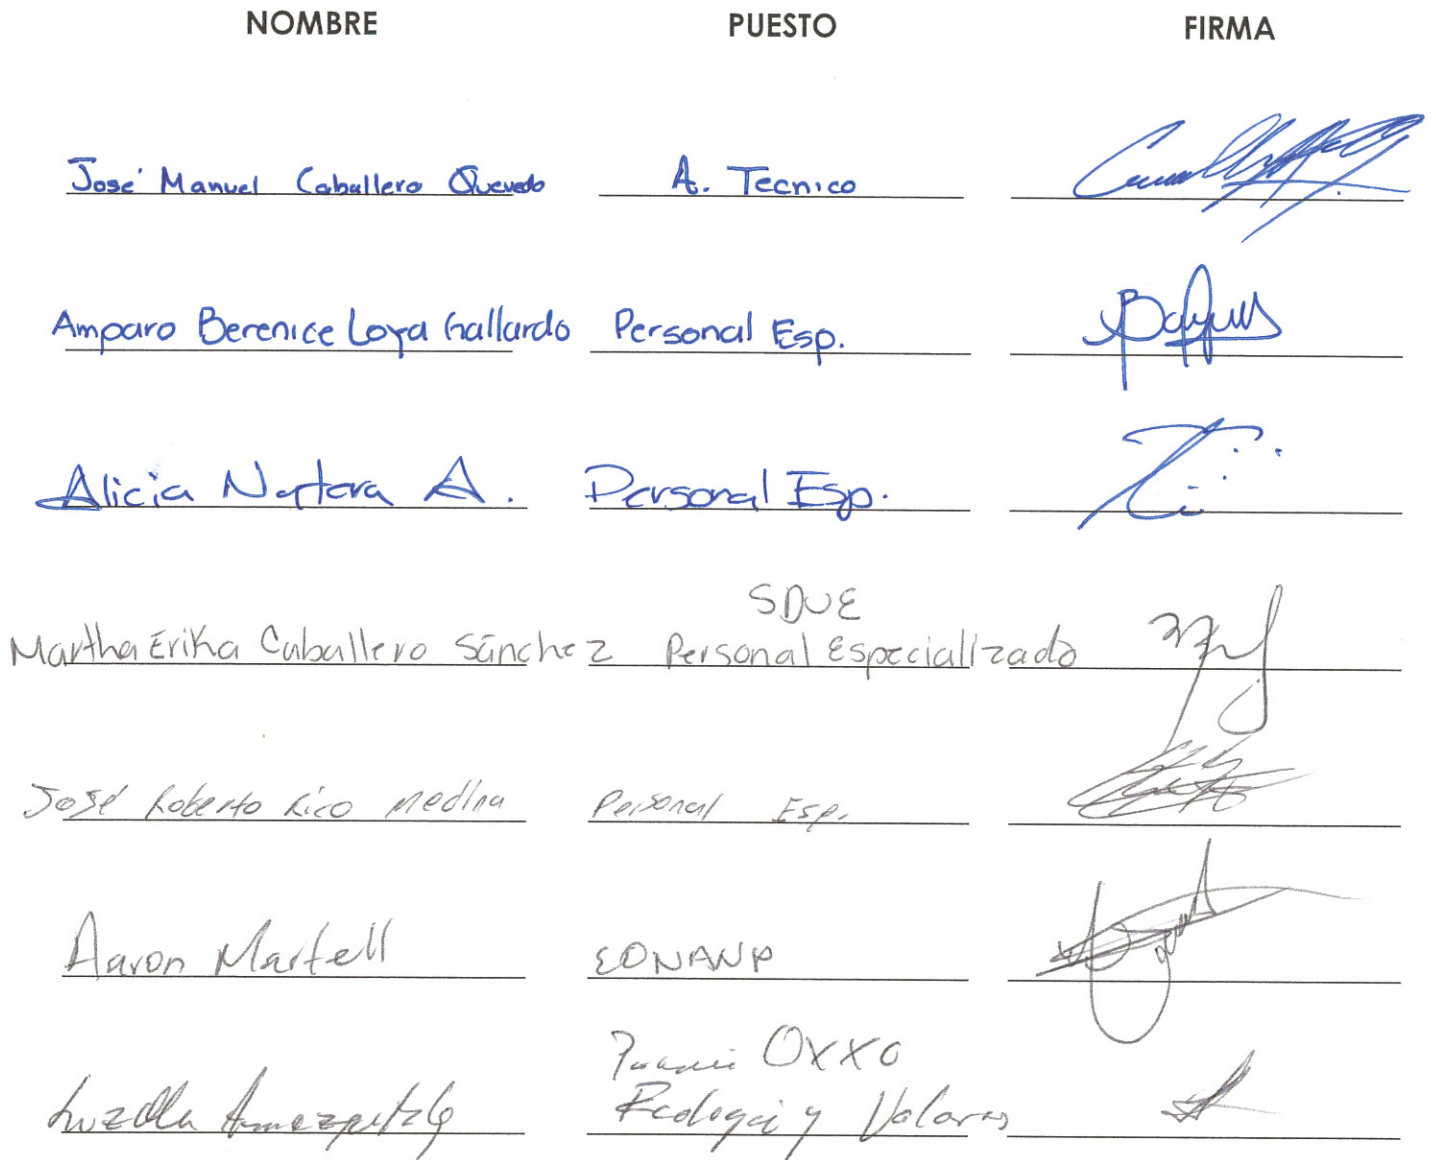 NOMBRE PUESTO FIRMA
José Manuel Caballero Quevedo A. Tecnico
Amparo Berenice Loya Gallardo Personal Esp.
Alicia Nartara A. Personal Esp.
SDUE
Martha Erika Caballero Sánchez Personal Especializado
José Roberto Rico Medina Personal Esp.
Aaron Martell CONANP
OXXO
Ecología y Valores